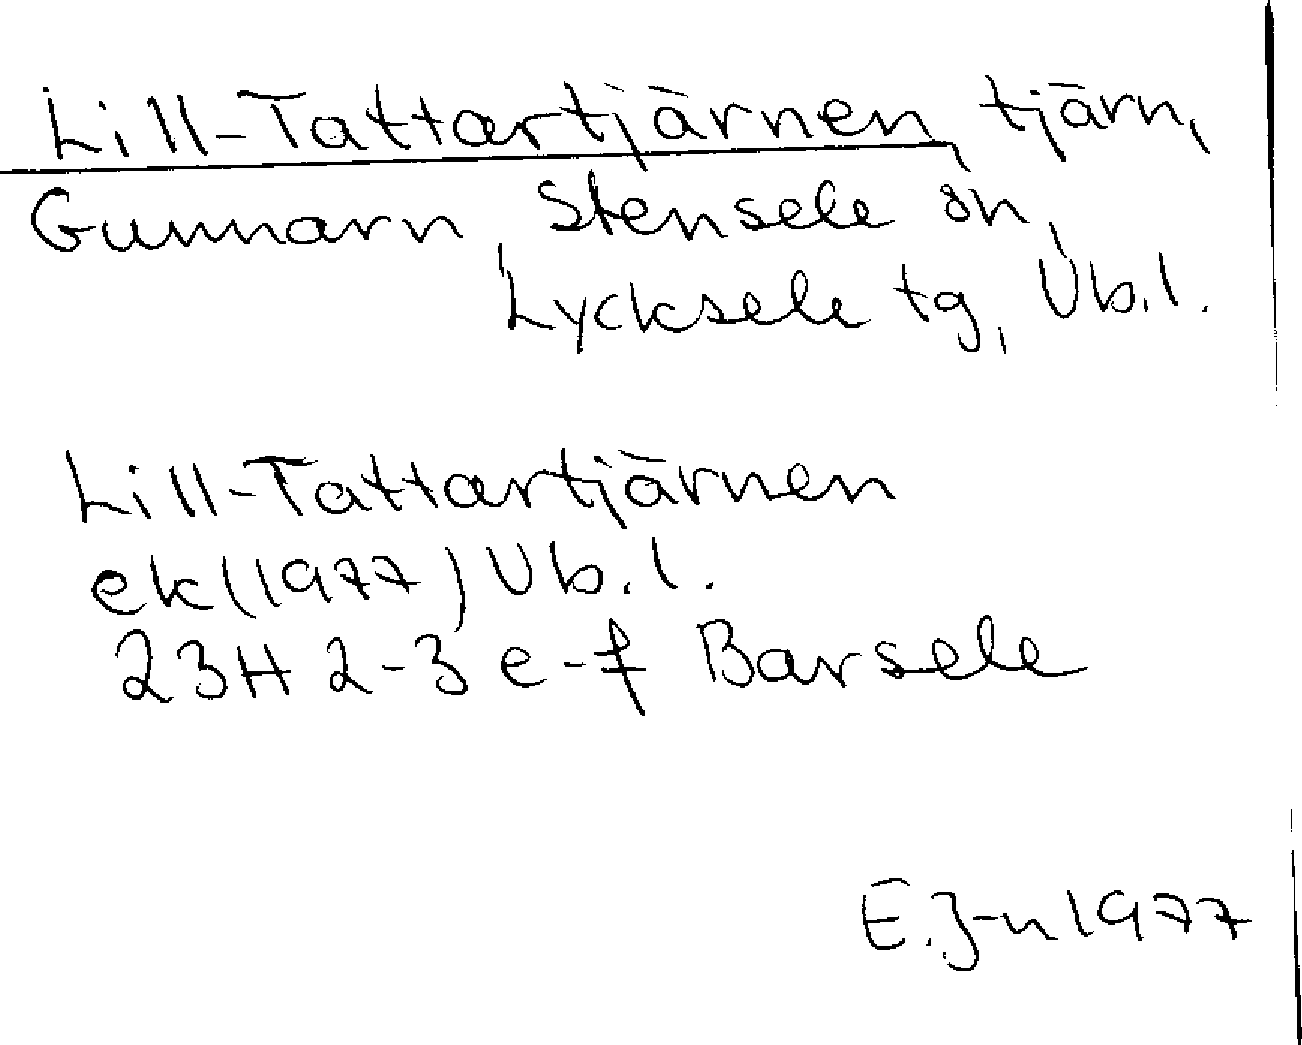 Lill-Tattartjärnen, tjärn,
Gunnarn, Stensele sn,
Lycksele tg, Vb.l.
Lill-Tattartjärnen
ek (1977) Vb.l.
23H 2-3 e-f Barsele
E.J-n 1977